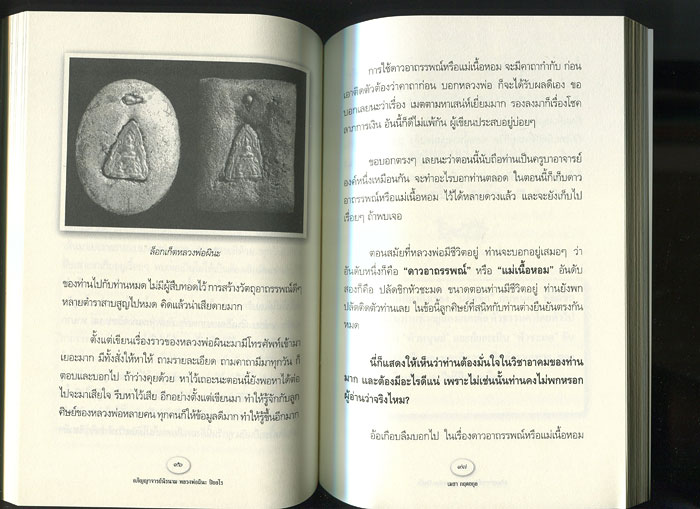 ล็อกเก็ตหลวงพ่อพินะ
ของท่านไปกับท่านหมด ไม่มีผู้สืบทอดไว้ การสร้างวัตถุอาถรรพณ์ดีๆ
หลายตำราสาบสูญไปหมด คิดแล้วน่าเสียดายมาก
ตั้งแต่เขียนเรื่องราวของหลวงพ่อพินะมามีโทรศัพท์เข้ามา
เยอะมาก มีทั้งสั่งให้หาให้ ถามรายละเอียด ถามคาถามีมาทุกวัน ก็
ตอบและบอกไป ถ้าว่างคุยด้วย หาไว้เถอะนะตอนนี้ยังพอหาได้ต่อ
ไปจะมาเสียใจ รีบหาไว้เสีย อีกอย่างตั้งแต่เขียนมา ทำให้รู้จักกับลูก
ศิษย์ของหลวงพ่อหลายคน ทุกคนก็ให้ข้อมูลดีมาก ทำให้รู้ขึ้นอีกมาก
๙๖
อภิญญาจารย์นิรนาม หลวงพ่อพินะ ปิยธโร
การใช้ดาวอาถรรพณ์หรือแม่เนื้อหอม จะมีคาถากำกับ ก่อน
เอาติดตัวต้องว่าคาถาก่อน บอกหลวงพ่อ ก็จะได้รับผลดีเอง ขอ
บอกเลยนะว่าเรื่อง เมตตามหาเสน่ห์เยี่ยมมาก รองลงมาก็เรื่องโชค
ลาภการเงิน อันนี้ก็ดีไม่แพ้กัน ผู้เขียนประสบอยู่บ่อยๆ
ขอบอกตรงๆ เลยนะว่าตอนนี้นับถือท่านเป็นครูบาอาจารย์
องค์หนึ่งเหมือนกัน จะทำอะไรบอกท่านตลอด ในตอนนี้ก็เก็บดาว
อาถรรพณ์หรือแม่เนื้อหอม ไว้ได้หลายดวงแล้ว และจะยังเก็บไป
เรื่อยๆ ถ้าพบเจอ
ตอนสมัยที่หลวงพ่อมีชีวิตอยู่ ท่านจะบอกอยู่เสมอๆ ว่า
อันดับหนึ่งก็คือ “ดาวอาถรรพณ์” หรือ “แม่เนื้อหอม” อันดับ
สองก็คือ ปลัดชิกหัวชะมด ขนาดตอนท่านมีชีวิตอยู่ ท่านยังพก
ปลัดติดตัวท่านเลย ในข้อนี้ลูกศิษย์ที่สนิทกับท่านต่างยืนยันตรงกัน
หมด
นี่ก็แสดงให้เห็นว่าท่านต้องมั่นใจในวิชาอาคมของท่าน
มาก และต้องมีอะไรดีแน่ เพราะไม่เช่นนั้นท่านคงไม่พกหรอก
ผู้อ่านว่าจริงไหม?
อ้อเกือบลืมบอกไป ในเรื่องดาวอาถรรพณ์หรือแม่เนื้อหอม
๙๗
เมธา